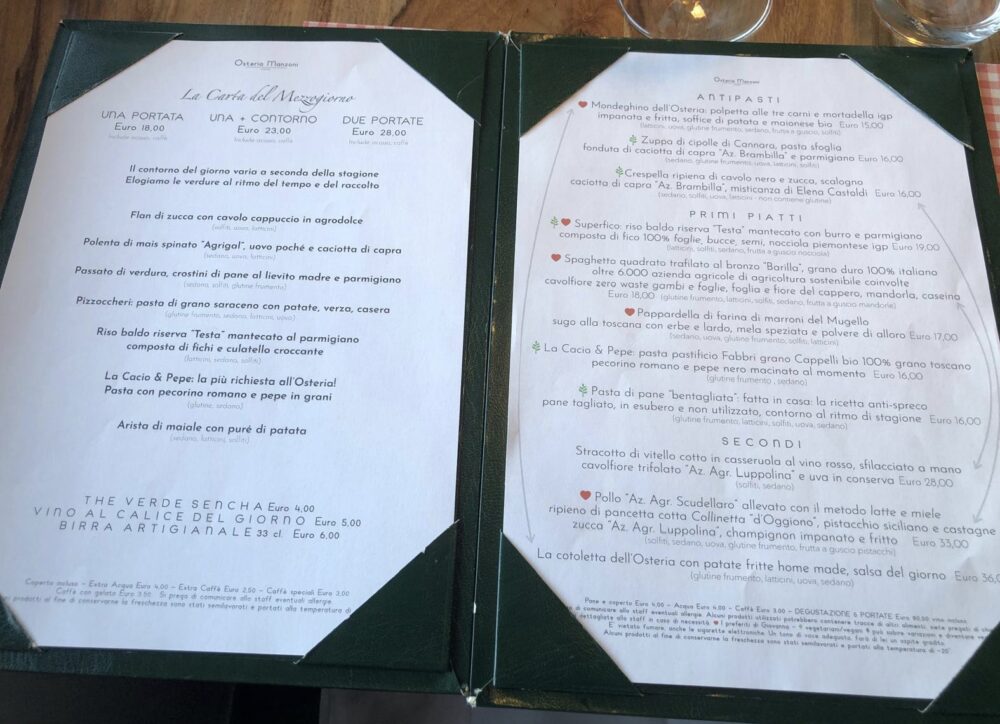 Osteria Manzoni
La Carta del Mezzogiorno
UNA PORTATA
Euro 18,00
Include acqua, caffè
UNA + CONTORNO
Euro 23,00
Include acqua, caffè
DUE PORTATE
Euro 28,00
Include acqua, caffè
Il contorno del giorno varia a seconda della stagione
Elogiamo le verdure al ritmo del tempo e del raccolto
Flan di zucca con cavolo cappuccio in agrodolce
(solfiti, uova, latticini)
Polenta di mais spinato "Agrigal", uovo poché e caciotta di capra
(sedano, uova, latticini)
Passato di verdura, crostini di pane al lievito madre e parmigiano
(sedano, solfiti, glutine frumento)
Pizzoccheri: pasta di grano saraceno con patate, verza, casera
(glutine frumento, sedano, latticini, uova)
Riso baldo riserva "Testa" mantecato al parmigiano
composta di fichi e culatello croccante
(latticini, sedano, solfiti)
La Cacio & Pepe: la più richiesta all'Osteria!
Pasta con pecorino romano e pepe in grani
(glutine, sedano)
Arista di maiale con puré di patata
(sedano, latticini, solfiti)
THE VERDE SENCHA Euro 4,00
VINO AL CALICE DEL GIORNO Euro 5,00
BIRRA ARTIGIANALE 33 cl. Euro 6,00
Coperto incluso - Extra Acqua Euro 4,00 - Extra Caffè Euro 2,50 - Caffè speciali Euro 3,00
Caffè con gelato Euro 3,50 Si prega di comunicare allo staff eventuali allergie
prodotti al fine di conservarne la freschezza sono stati semilavorati e portati alla temperatura di
Osteria Manzoni
ANTIPASTI
Mondeghino dell'Osteria: polpetta alle tre carni e mortadella igp
impanata e fritta, soffice di patata e maionese bio Euro 15,00
(latticini, uova, glutine frumento, sedano, frutta a guscio, solfiti)
Zuppa di cipolle di Cannara, pasta sfoglia
fonduta di caciotta di capra "Az. Brambilla" e parmigiano Euro 16,00
(sedano, glutine frumento, uova, latticini, solfiti)
Crespella ripiena di cavolo nero e zucca, scalogna
caciotta di capra "Az. Brambilla", misticanza di Elena Castaldi Euro 16,00
(sedano, solfiti, uova, latticini - non contiene glutine)
PRIMI PIATTI
Superfico: riso baldo riserva "Testa" mantecato con burro e parmigiano
composta di fico 100% foglie, bucce, semi, nocciola piemontese igp Euro 19,00
(latticini, solfiti, sedano, frutta a guscio nocciola)
Spaghetto quadrato trafilato al bronzo "Barilla", grano duro 100% italiano
oltre 6.000 azienda agricole di agricoltura sostenibile coinvolte
cavolfiore zero waste gambi e foglie, foglia e fiore del cappero, mandorla, caseino
Euro 18,00 (glutine frumento, latticini, solfiti, sedano, frutta a guscio mandorle)
Pappardella di farina di marroni del Mugello
sugo alla toscana con erbe e lardo, mela speziata e polvere di alloro Euro 17,00
(sedano, uova, glutine frumento, solfiti, latticini)
La Cacio & Pepe: pasta pastificio Fabbri grano Cappelli bio 100% grano toscano
pecorino romano e pepe nero macinato al momento Euro 16,00
(glutine frumento, sedano)
Pasta di pane "bentagliata": fatta in casa: la ricetta anti-spreco
pane tagliato, in esubero e non utilizzato, contorno al ritmo di stagione Euro 16,00
(glutine frumento, latticini, solfiti, uova, sedano)
SECONDI
Stracotto di vitello cotto in casseruola al vino rosso, sfilacciato a mano
cavolfiore trifolato "Az. Agr. Luppolina" e uva in conserva Euro 28,00
(solfiti, sedano)
Pollo "Az. Agr. Scudellaro" allevato con il metodo latte e miele
ripieno di pancetta cotta Collinetta "d'Oggiono", pistacchio siciliano e castagne
zucca "Az. Agr. Luppolina", champignon impanato e fritto Euro 33,00
(solfiti, sedano, uova, glutine frumento, frutta a guscio pistacchi)
La cotoletta dell'Osteria con patate fritte home made, salsa del giorno Euro 36,0
(glutine frumento, latticini, uova, sedano)
Pane e coperto Euro 4,00 - Acqua Euro 4,00 - Caffè Euro 3,00 - DEGUSTAZIONE 6 PORTATE Euro 80,00 vino incluso
di comunicare allo staff eventuali allergie. Alcuni prodotti utilizzati potrebbero contenere tracce di altri alimenti, siete pregati di
dettagliate allo staff in caso di necessità. I preferiti di Giovanna - vegetariani/vegan può subire variazioni e diventare
E' vietato fumare, anche le sigarette elettroniche. Un tono di voce adeguato, farà di lei un ospite gradito.
Alcuni prodotti al fine di conservarne la freschezza sono stati semilavorati e portati alla temperatura di -20°